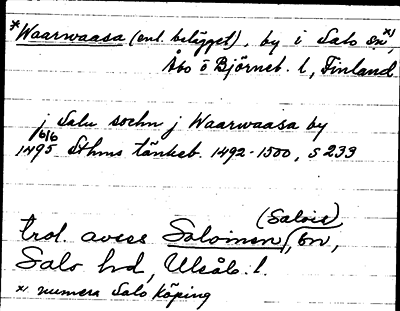 *Waarwaasa (enl. belägget), by i Salo sn *)
Åbo o Björneb. l, Finland
j Salu sochn j Waarwaasa by
1495 6/6 Sthms tänkeb. 1492-1500, s 233
(Salois)
trol. avses Saloinen, sn,
Salo hd, Uleåb. l.
*) numera Salo köping